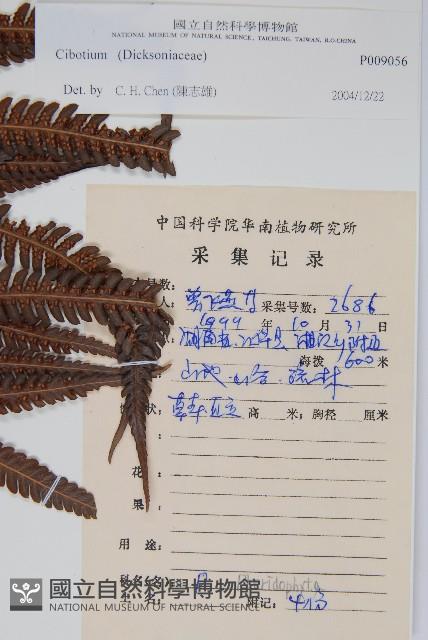 國立自然科學博物館
NATIONAL MUSEUM OF NATURAL SCIENCE, TAICHUNG, TAIWAN, R.O.CHINA
Cibotium (Dicksoniaceae) P009056
Det. by C. H. Chen (陳志雄) 2004/12/22
中国科学院华南植物研究所
采集记录
号数:
人: 采集号数: 2686
1999 年 10 月 31 日
海拨 600 米
山地 山谷 疏林
状: 草本 直立 高 米; 胸径 厘米
花:
果:
用途:
科名
附记:
國立自然科學博物館
NATIONAL MUSEUM OF NATURAL SCIENCE